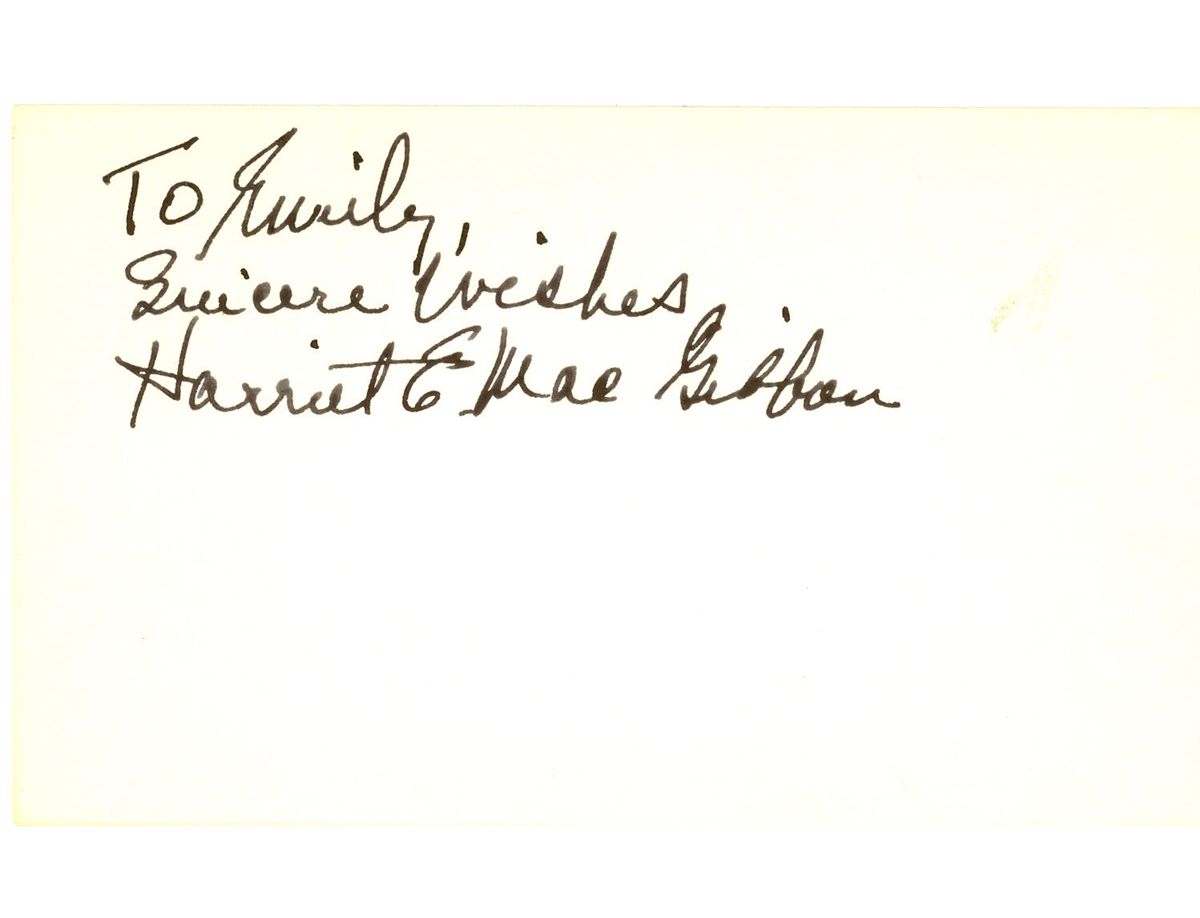 To Emily,
Sincere Wishes
Harriet E Mac Gibbon